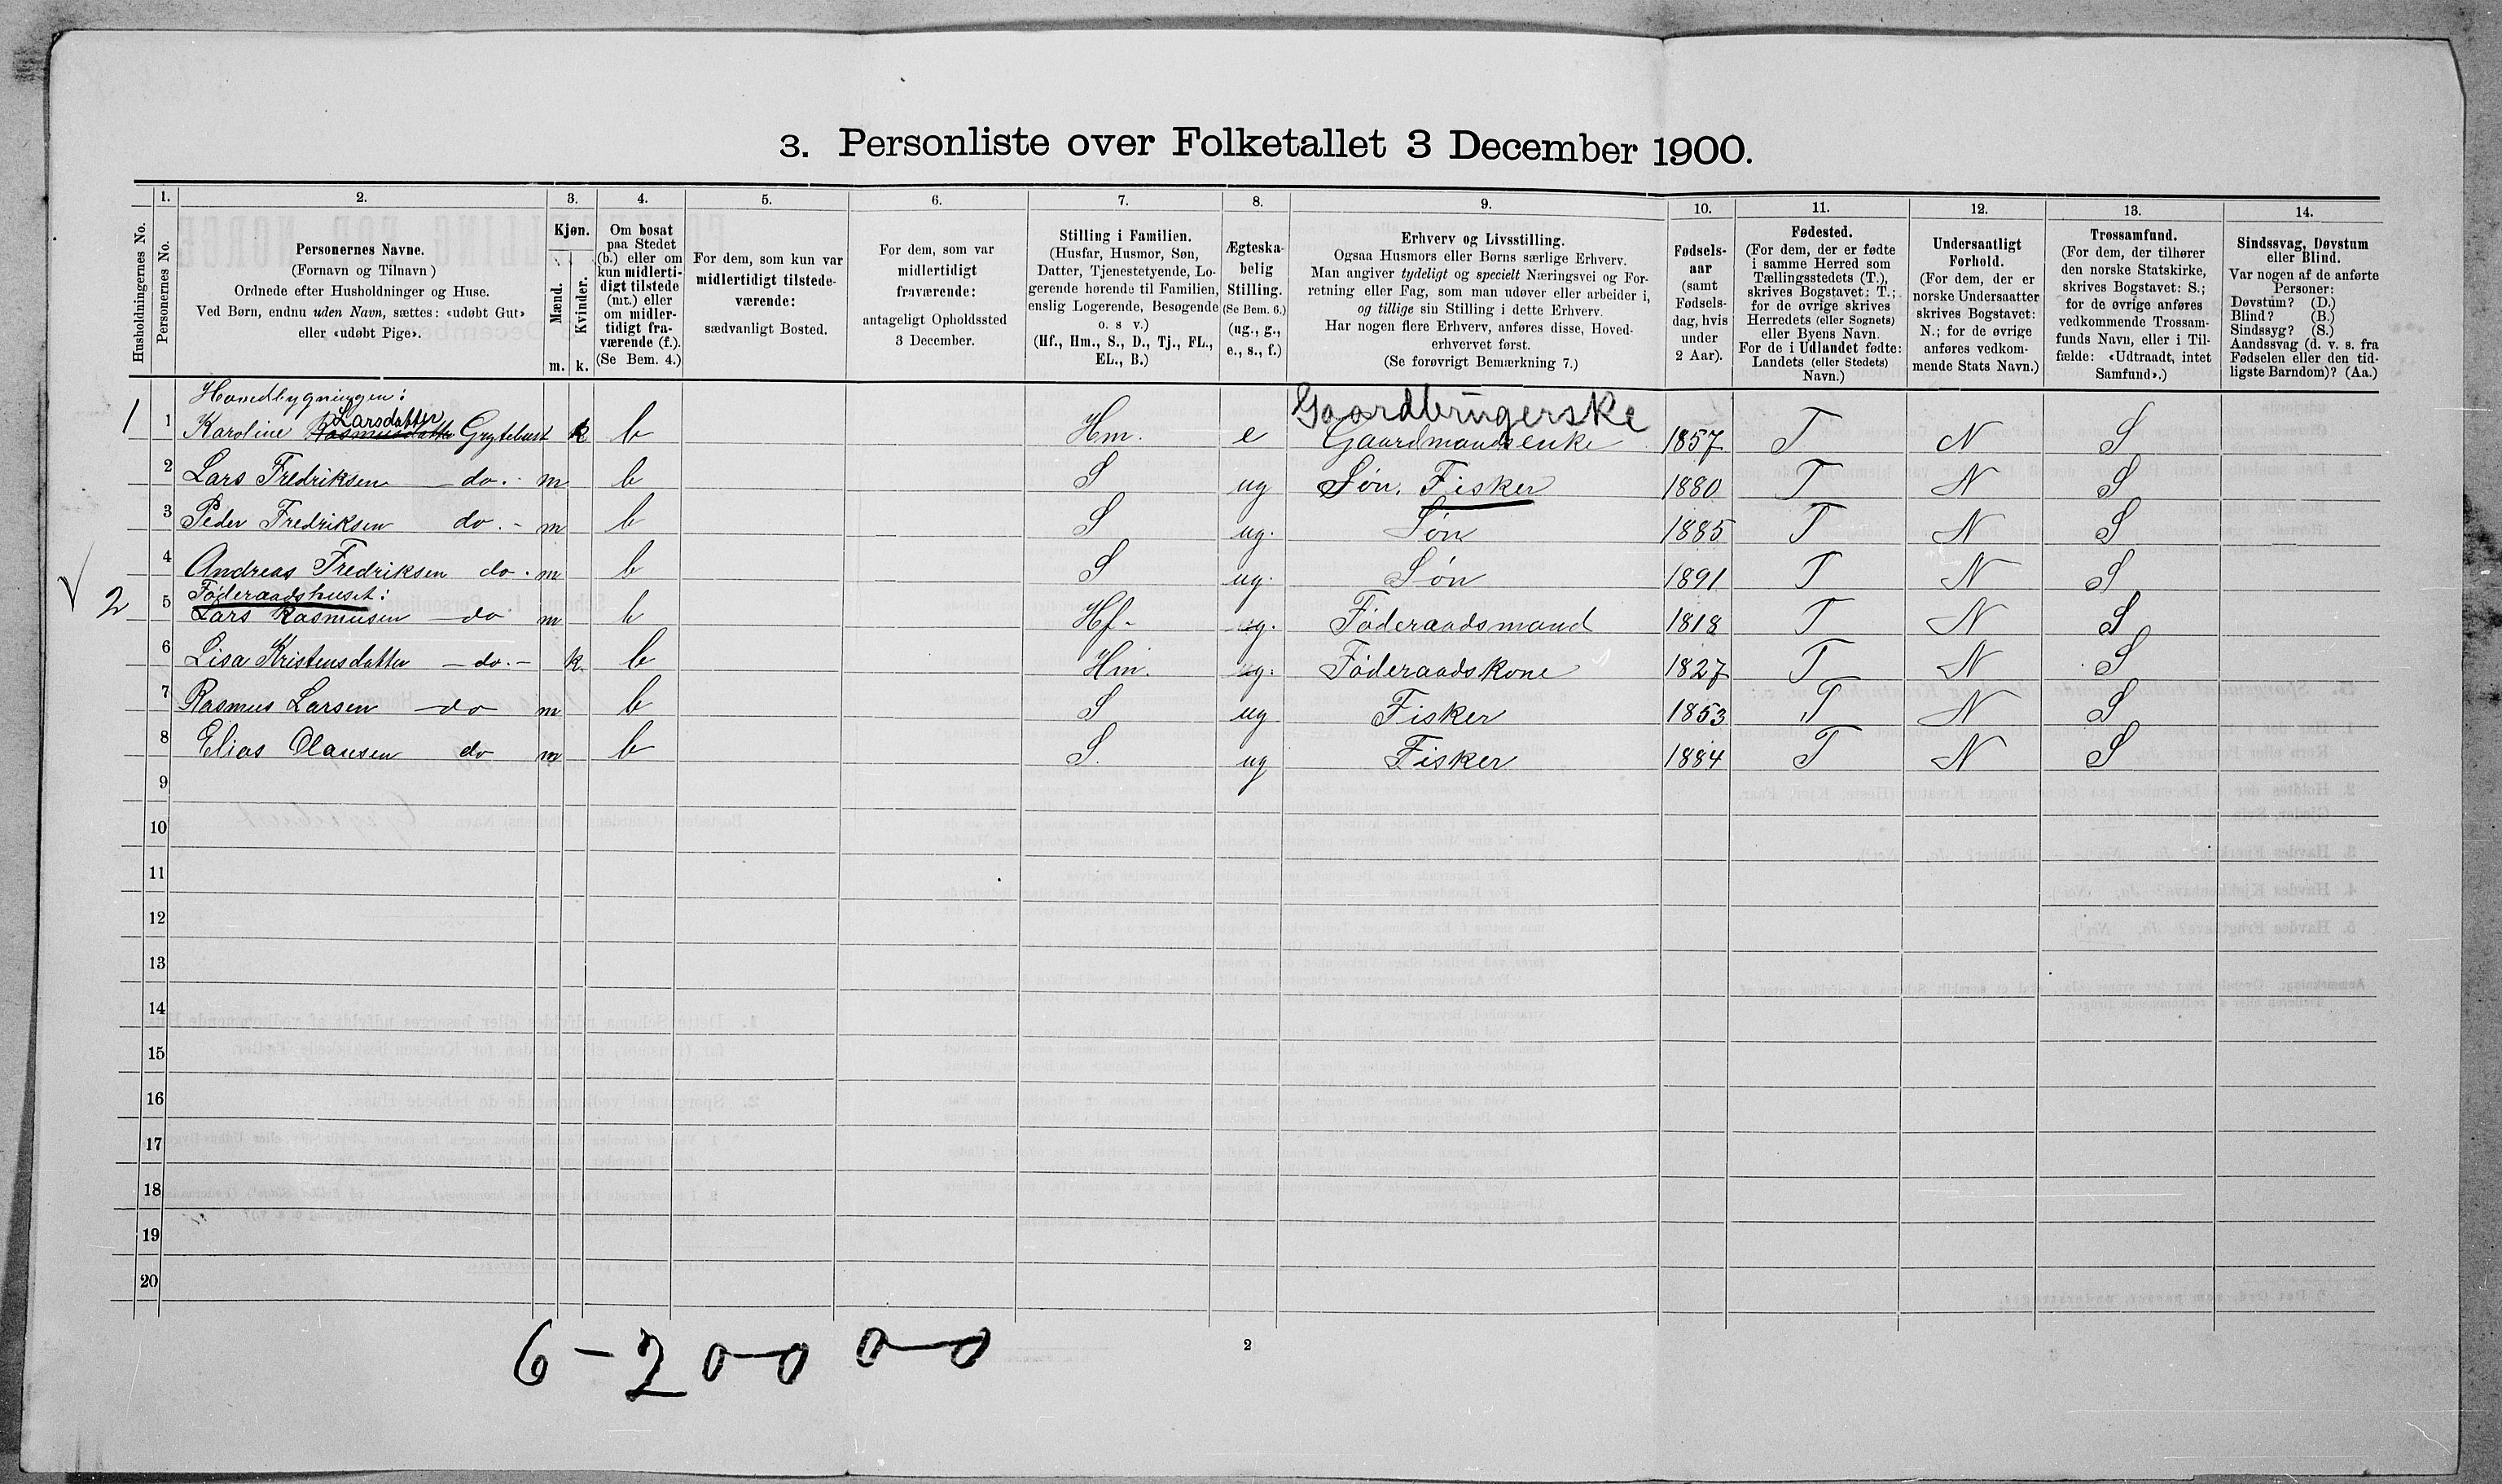 3. Personliste over Folketallet 3 December 1900.
Husholdningernes No.
1.
Personernes No.
2.
Personernes Navne.
(Fornavn og Tilnavn )
Ordnede efter Husholdninger og Huse.
Ved Børn, endnu uden Navn, sættes: «udøbt Gut»
eller «udøbt Pige».
3.
Kjøn.
Mænd.
Kvinder.
m. k.
4.
Om bosat
paa Stedet
(b.) eller om
kun midlerti-
digt tilstede
(mt.) eller
om midler-
tidigt fra-
værende (f.).
(Se Bem. 4.)
5.
For dem, som kun var
midlertidigt tilstede-
værende:
sædvanligt Bosted.
6.
For dem, som var
midlertidigt
fraværende:
antageligt Opholdssted
3 December.
7.
Stilling i Familien.
(Husfar, Husmor, Søn,
Datter, Tjenestetyende, Lo-
gerende hørende til Familien,
enslig Logerende, Besøgende
o. s v.)
(Hf., Hm., S., D., Tj., FL.,
EL., B.)
8.
Ægteska-
belig
Stilling.
(Se Bem. 6.)
(ug., g.,
e., s., f.)
9.
Erhverv og Livsstilling.
Ogsaa Husmors eller Børns særlige Erhverv.
Man angiver tydeligt og specielt Næringsvei og For-
retning eller Fag, som man udøver eller arbeider i,
og tillige sin Stilling i dette Erhverv.
Har nogen flere Erhverv, anføres disse, Hoved-
erhvervet først.
(Se forøvrigt Bemærkning 7.)
10.
Fødsels-
aar
(samt
Fødsels-
dag, hvis
under
2 Aar).
11.
Fødested.
(For dem, der er fødte
i samme Herred som
Tællingsstedets (T.),
skrives Bogstavet: T.;
for de øvrige skrives
Herredets (eller Sognets)
eller Byens Navn.
For de i Udlandet fødte:
Landets (eller Stedets)
Navn.)
12.
Undersaatligt
Forhold.
(For dem, der er
norske Undersaatter
skrives Bogstavet:
N.; for de øvrige
anføres vedkom-
mende Stats Navn.)
13.
Trossamfund.
(For dem, der tilhører
den norske Statskirke,
skrives Bogstavet: S.;
for de øvrige anføres
vedkommende Trossam-
funds Navn, eller i Til-
fælde: «Udtraadt, intet
Samfund».)
14.
Sindssvag, Døvstum
eller Blind.
Var nogen af de anførte
Personer:
Døvstum? (D.)
Blind? (B.)
Sindssyg? (S.)
Aandssvag (d. v. s. fra
Fødselen eller den tid-
ligste Barndom)? (Aa.)
Hovedbygningen:
Larsdatter
Gaardbrugerske
1 1 Karoline Rasmusdatter Grytebust k b Hm. e Gaardmandsenke 1857 T N S
2 Lars Fredriksen do. m b S ug Søn, Fisker 1880 T N S
3 Peder Fredriksen do. m b S ug. Søn 1885 T N S
4 Andreas Fredriksen do. m b S ug. Søn 1891 T N S
Føderaadshuset:
2 5 Lars Rasmusen do m b Hf. g. Føderaadsmand 1818 T N S
6 Lisa Kristensdatter do. k b Hm. g. Føderaadskone 1827 T N S
7 Rasmus Larsen do m b S ug Fisker 1853 T N S
8 Elias Olausen do m b S. ug Fisker 1884 T N S
9
10
11
12
13
14
15
16
17
18
19
20
6 - 2 0-0 0-0
2